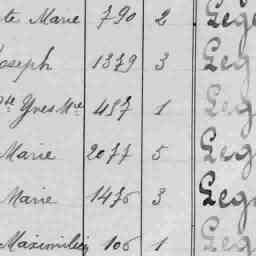 te Marie 790 2 Leg
Joseph 1379 3 Leg
Yves Me 457 1 Leg
Marie 2077 5 Leg
Marie 1476 3 Leg
Maximilien 106 1 Leg